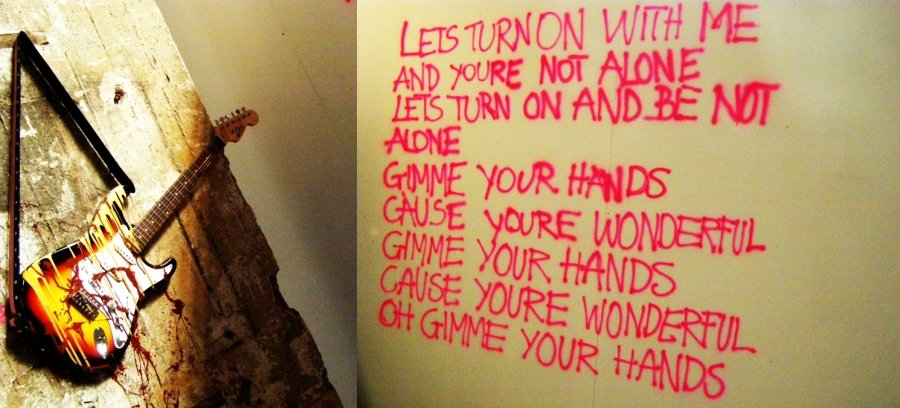 LETS TURN ON WITH ME
AND YOURE NOT ALONE
LETS TURN ON AND BE NOT
ALONE
GIMME YOUR HANDS
CAUSE YOURE WONDERFUL
GIMME YOUR HANDS
CAUSE YOURE WONDERFUL
OH GIMME YOUR HANDS